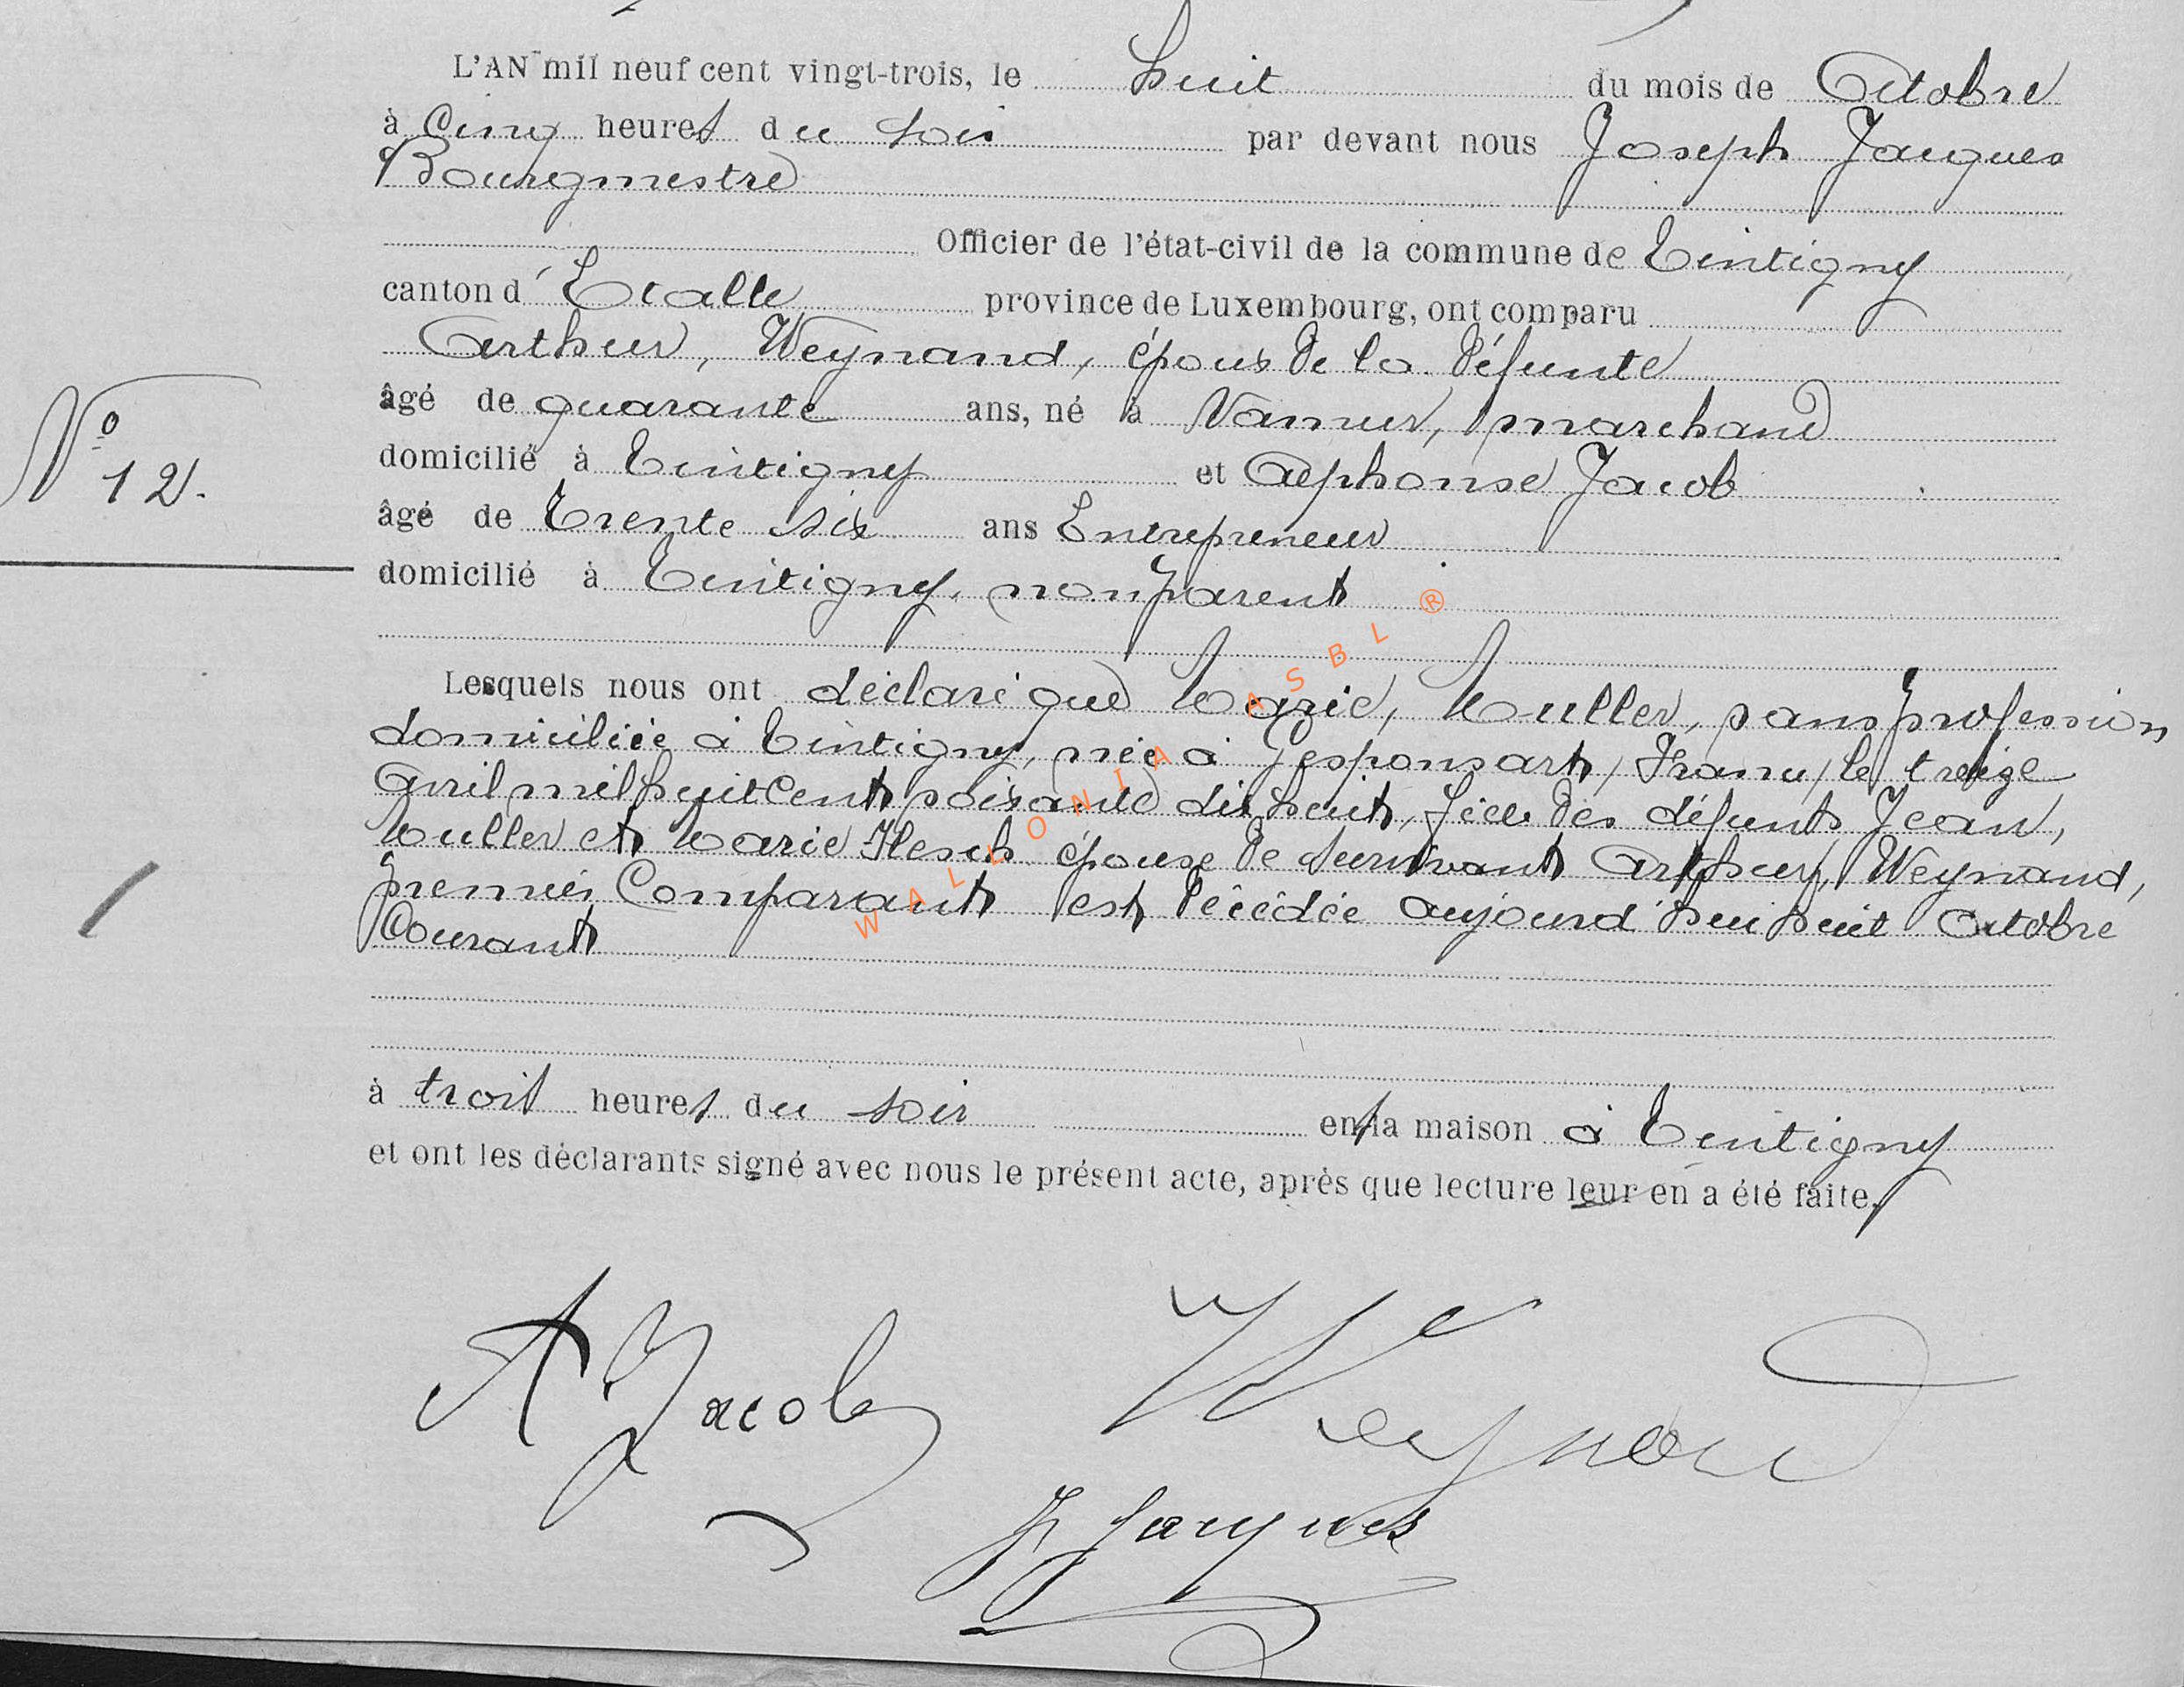 L'AN mil neuf cent vingt-trois, le huit du mois de Octobre
à Cinq heures du soir par devant nous Joseph Jacques
Bourgmestre
Officier de l'état-civil de la commune de Tintigny
canton d' Etalle province de Luxembourg, ont comparu
Arthur, Weynand, époux de la défunte
âgé de quarante ans, né à Namur, marchand
domicilié à Tintigny et Alphonse Jacob
N° 12.
âgé de Trente six ans Entrepreneur
domicilié à Tintigny, non parent
Lesquels nous ont déclaré que Marie, Muller, sans profession
domiciliée à Tintigny, née à Gesponsart, France, le treize
Avril mil huit Cent soixante dix huit, fille des défunts Jean,
Muller et Marie Flesch épouse de survivant Arthur, Weynand,
premier Comparant est décédée aujourd'hui huit Octobre
Courant
à trois heures du soir en sa maison à Tintigny
et ont les déclarants signé avec nous le présent acte, après que lecture leur en a été faite.
A Jacob Weynand
J Jacques
WALLONIA ASBL ®